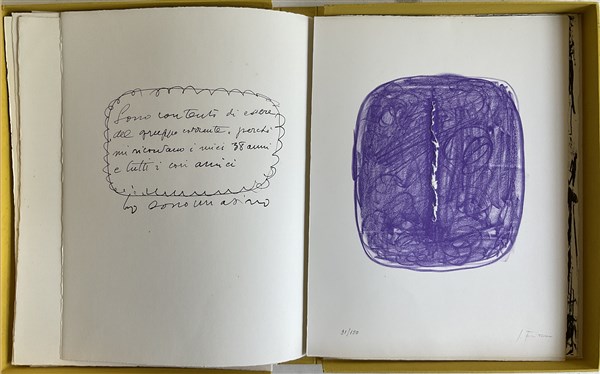 Sono contento di essere
del gruppo corrente. perchè
mi ricordano i miei 38 anni
e tutti i cari amici
io sono un asino
91/150